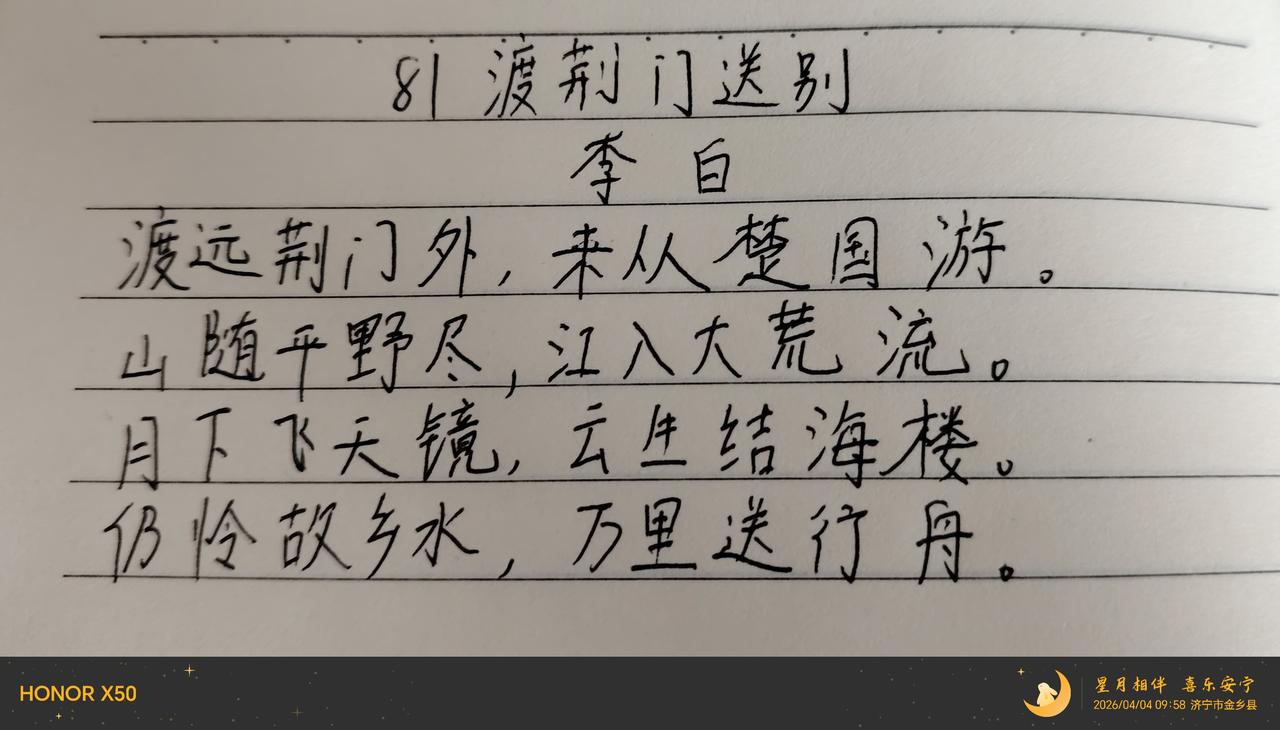 81 渡荆门送别
李白
渡远荆门外,来从楚国游。
山随平野尽,江入大荒流。
月下飞天镜,云生结海楼。
仍怜故乡水,万里送行舟。
HONOR X50
星月相伴 喜乐安宁
2026/04/04 09:58 济宁市金乡县